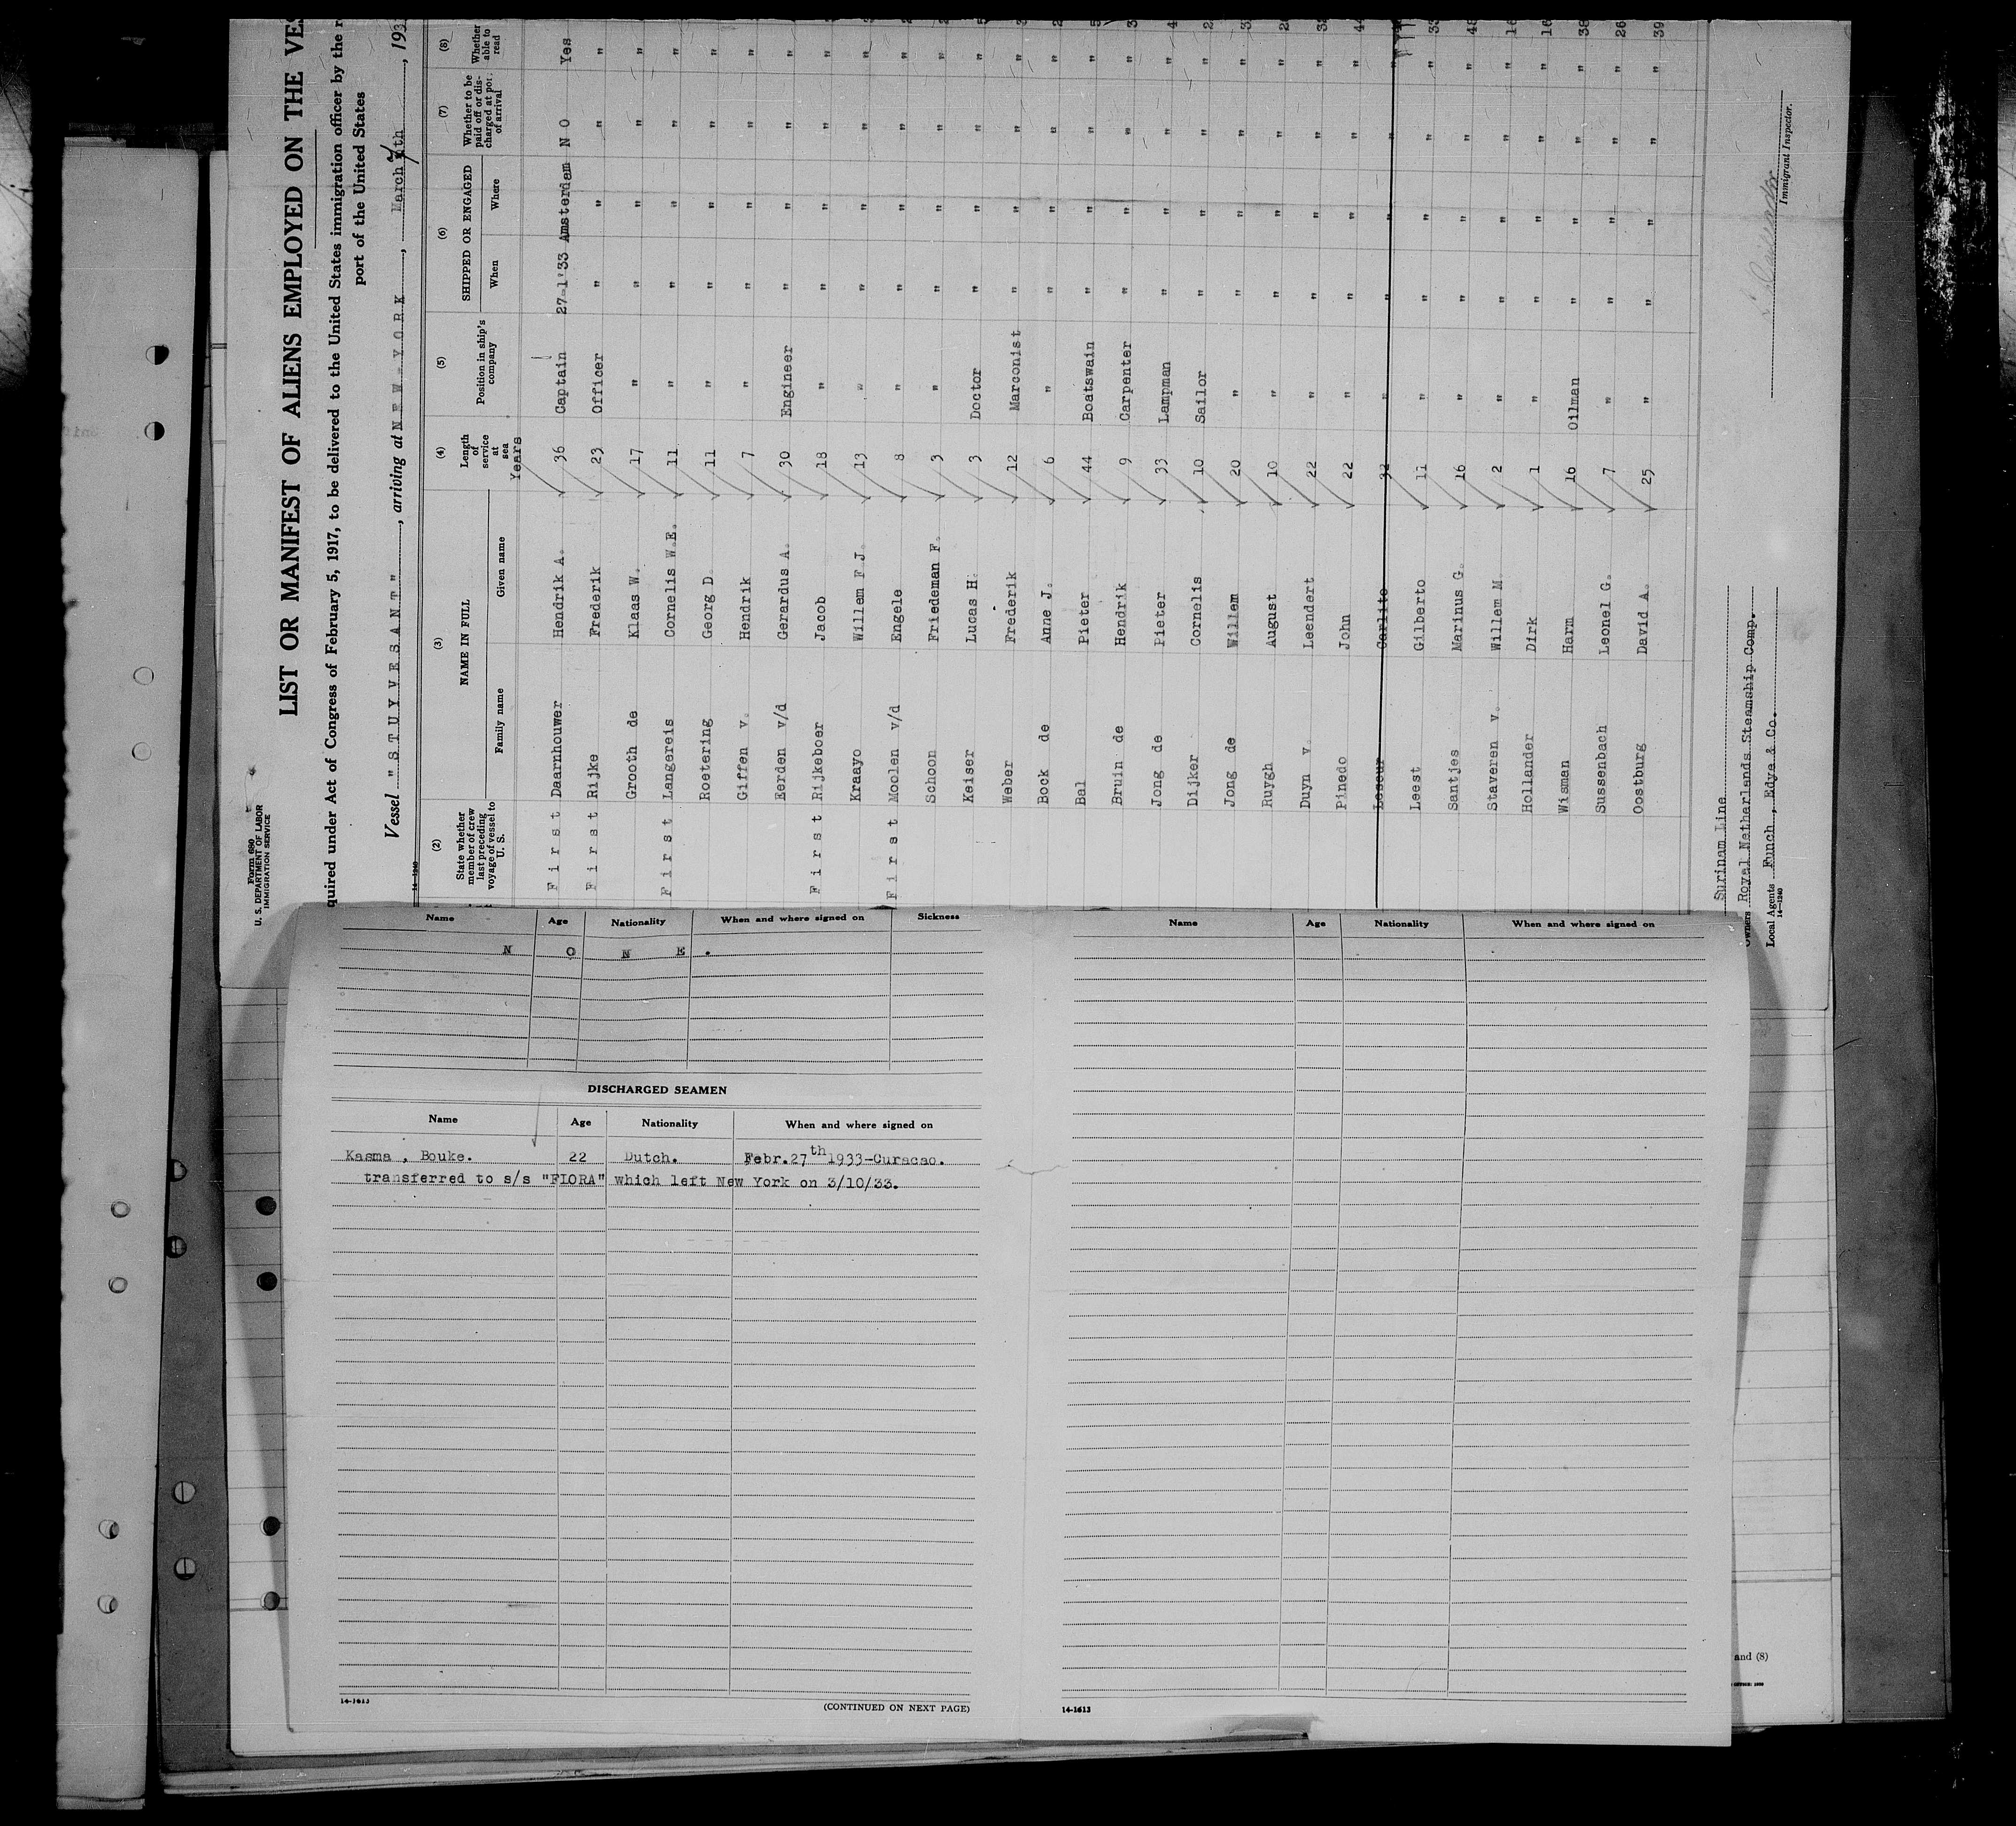 Form 680
U. S. DEPARTMENT OF LABOR
IMMIGRATION SERVICE
LIST OR MANIFEST OF ALIENS EMPLOYED ON THE VES
quired under Act of Congress of February 5, 1917, to be delivered to the United States immigration officer by the r
port of the United States
Vessel "STUYVESANT", arriving at NEW-YORK, March 7th, 193
14—1240
(2) (3) (4) (5) (6) (7) (8)
State whether member of crew last preceding voyage of vessel to U. S. NAME IN FULL Family name Given name Length of service at sea Position in ship's company SHIPPED OR ENGAGED When Where Whether to be paid off or discharged at port of arrival Whether able to read
Years
First Daarnhouwer Hendrik A. 36 Captain 27-1'33 Amsterdam NO Yes
First Rijke Frederik 23 Officer " " " "
Grooth de Klaas W. 17 " " " " "
First Langereis Cornelis W.E. 11 " " " " "
Roetering Georg D. 11 " " " " "
Giffen v. Hendrik 7 " " " " "
Eerden v/d Gerardus A. 30 Engineer " " " "
First Rijkeboer Jacob 18 " " " " "
Kraayo Willem F.J. 13 " " " " "
First Moolen v/d Engele 8 " " " " "
Schoon Friedeman F. 3 " " " " "
Keiser Lucas H. 3 Doctor " " " "
Weber Frederik 12 Marconist " " " "
Bock de Anne J. 6 " " " " "
Bal Pieter 44 Boatswain " " " "
Bruin de Hendrik 9 Carpenter " " " "
Jong de Pieter 33 Lampman " " " "
Dijker Cornelis 10 Sailor " " " "
Jong de Willem 20 " " " " "
Ruygh August 10 " " " " "
Duyn v. Leendert 22 " " " " "
Pinedo John 22 " " " " "
Leseur Carlito 32 " " " " "
Leest Gilberto 11 " " " " "
Santjes Marinus G. 16 " " " " "
Staveren v. Willem M. 2 " " " " "
Hollander Dirk 1 " " " " "
Wisman Harm 16 Oilman " " " "
Sussenbach Leonel G. 7 " " " " "
Oostburg David A. 25 " " " " "
Surinam Line
Owners Royal Netherlands Steamship Comp.
Local Agents Funch, Edye & Co.
14—1240
Immigrant Inspector.
Name Age Nationality When and where signed on Sickness
N O N E .
DISCHARGED SEAMEN
Name Age Nationality When and where signed on
Kasma , Bouke. 22 Dutch. Febr.27th 1933-Curacao.
transferred to s/s "FLORA" which left New York on 3/10/33.
14-1613
(CONTINUED ON NEXT PAGE)
Name Age Nationality When and where signed on
14-1613
and (8)